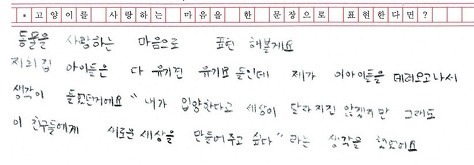 • 고양이를 사랑하는 마음을 한 문장으로 표현한다면?
동물을 사랑하는 마음으로 표현 해볼게요
저희집 아이들은 다 유기견 유기묘 들인데 제가 이아이들을 데려오고나서
생각이 들었던게요 " 내가 입양한다고 세상이 달라지진 않겠지만 그래도
이 친구들에게 새로운세상을 만들어주고 싶다" 라는 생각을 했었어요